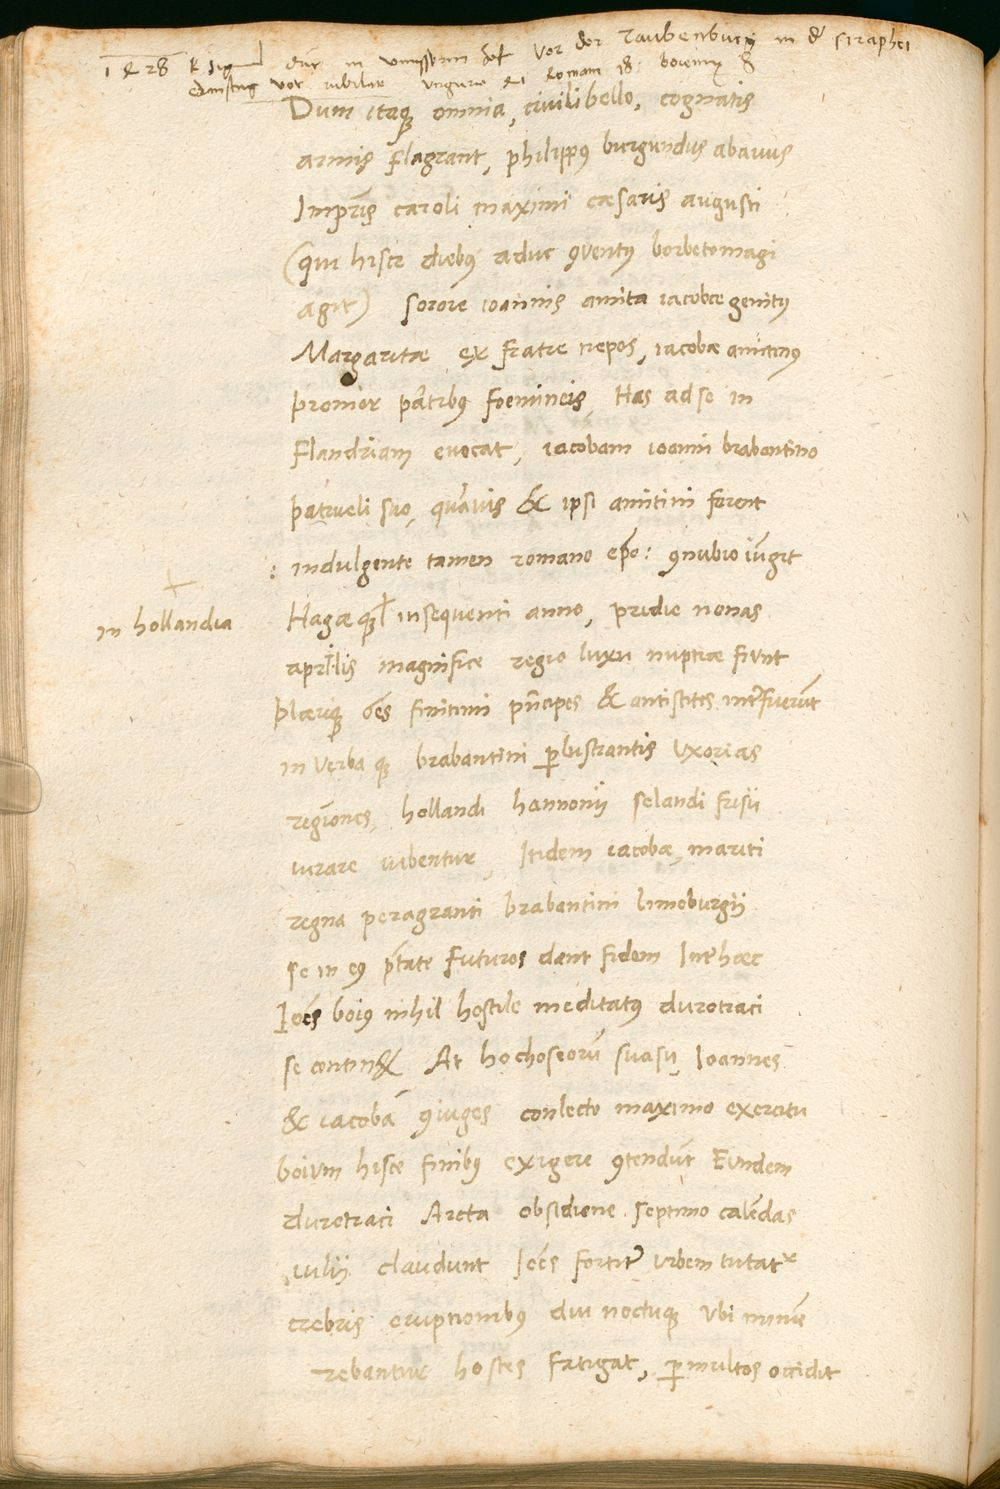 1428 k Sig dux in vor der Taubenburg in
Dum itaq; omnia, civili bello, cognatis
armis flagrant, philippꝰ burgundus abavus
Imprīs caroli maximi cæsaris augusti
(qui hisce diebꝰ aduc ꝯventꝰ borbetomagi
agit) sorore ioannis amita iacobæ genitꝰ
Margaritæ ex fratre nepos, iacobæ amitinꝰ
promor pātribꝰ foemineis, Has ad se in
flandriam evocat, iacobam ioanni brabantino
patrueli suo, quāvis & ipsi amitini forent
: indulgente tamen romano ep̄o: ꝯnubio iūgit
in hollandia
Hagæ insequenti anno, pridie nonas
aprīlis magnifice regio luxu nuptiæ fiunt
plæriq; ōēs finitimi pn̄cipes & antistites intˀfuerūt
in verba q; brabantini ꝑlustrantis uxorias
regiōnes, hollandi hannonij selandi frisij
iurare iubentur, Itidem iacobæ, mariti
regna peragranti brabantini limeburgij
se in eꝰ ptātate futuros dant fidem Intˀhæc
Ioēs boiꝰ nihil hostile meditatꝰ durotraci
se contin& At hochoseorū suasu Ioannes
& iacobā ꝯiuges conlecto maximo exercitu
boium hisce finibꝰ exigere ꝯtendūt Eundem
durotraci Arcta obsidione septimo calēdas
iulij claudunt Ioēs fortitˀ urbem tutatr
crebris eruptionibꝰ diu noctuq; ubi minīe
rebantur hostes fatigat, ꝑmultos occidit